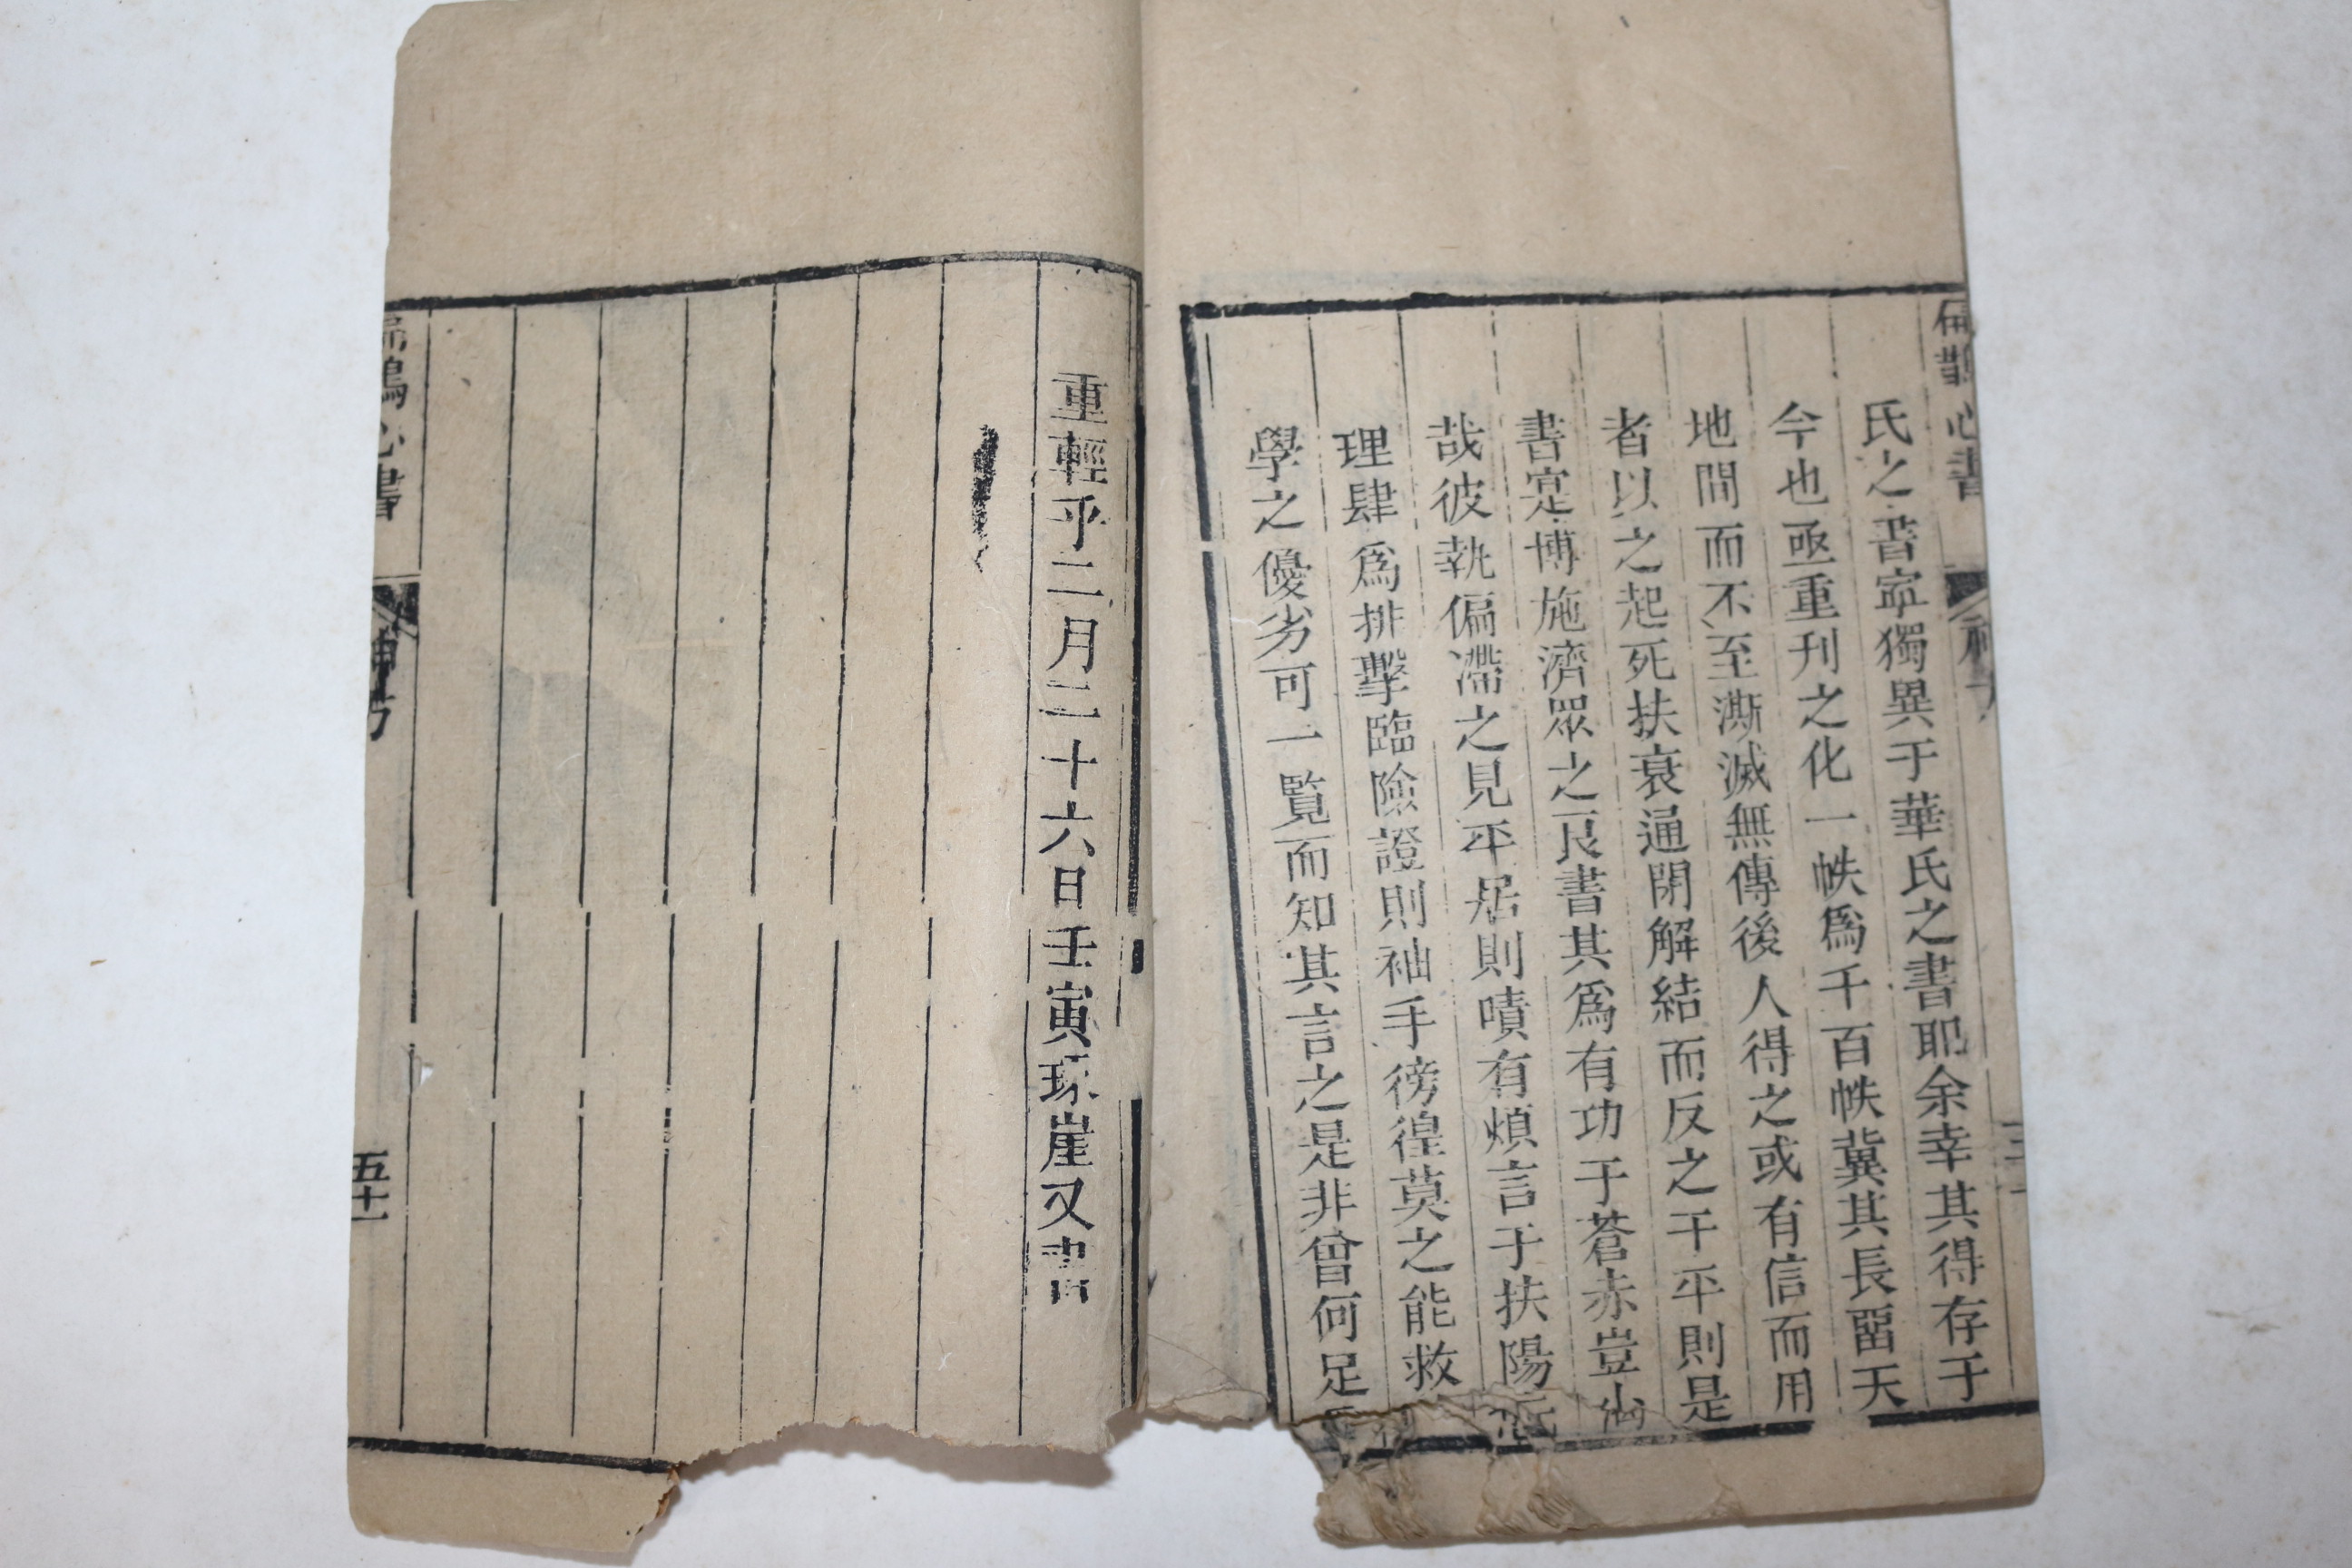 扁鵲心書
神方
氏之書寧獨異于華氏之書耶余幸其得存于
今也亟重刊之化一帙爲千百帙冀其長畱天
地間而不至澌滅無傳後人得之或有信而用
者以之起死扶衰通閉解結而反之于平則是
書寔博施濟眾之良書其爲有功于蒼赤豈尠
哉彼執偏滯之見平居則嘖有煩言于扶陽
理肆爲排擊臨險證則袖手徬徨莫之能救
學之優劣可一覧而知其言之是非曾何足
重輕乎二月二十六日壬寅琢崖又書
扁鵲心書
神方
五十一